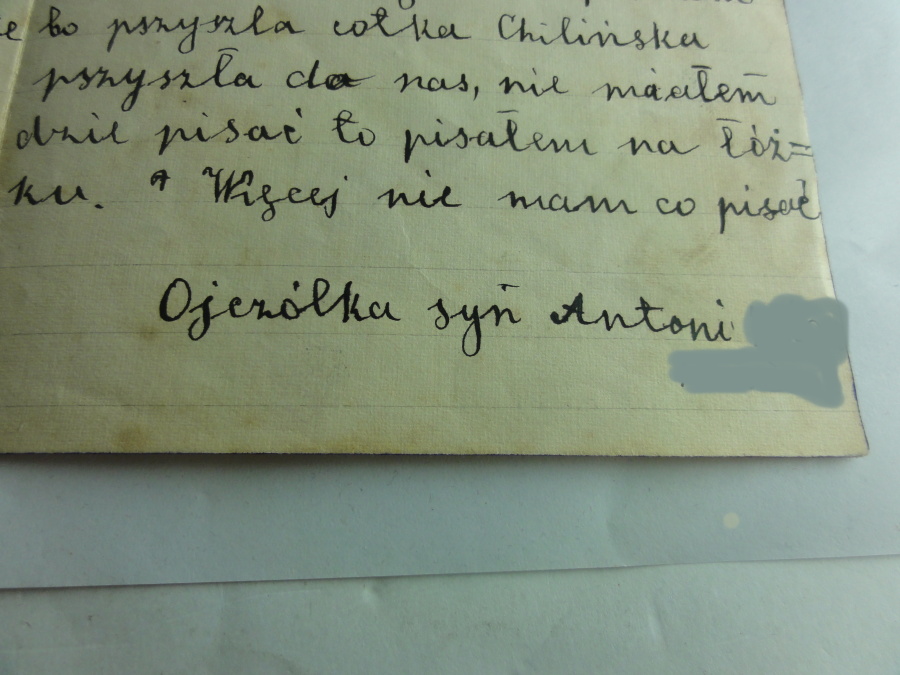 e bo pszyszla cołka Chilińska
pszyszła do nas, nie miałem
dzie pisać to pisałem na łóż=
ku. Więcej nie mam co pisać
Ojczólka syn Antoni